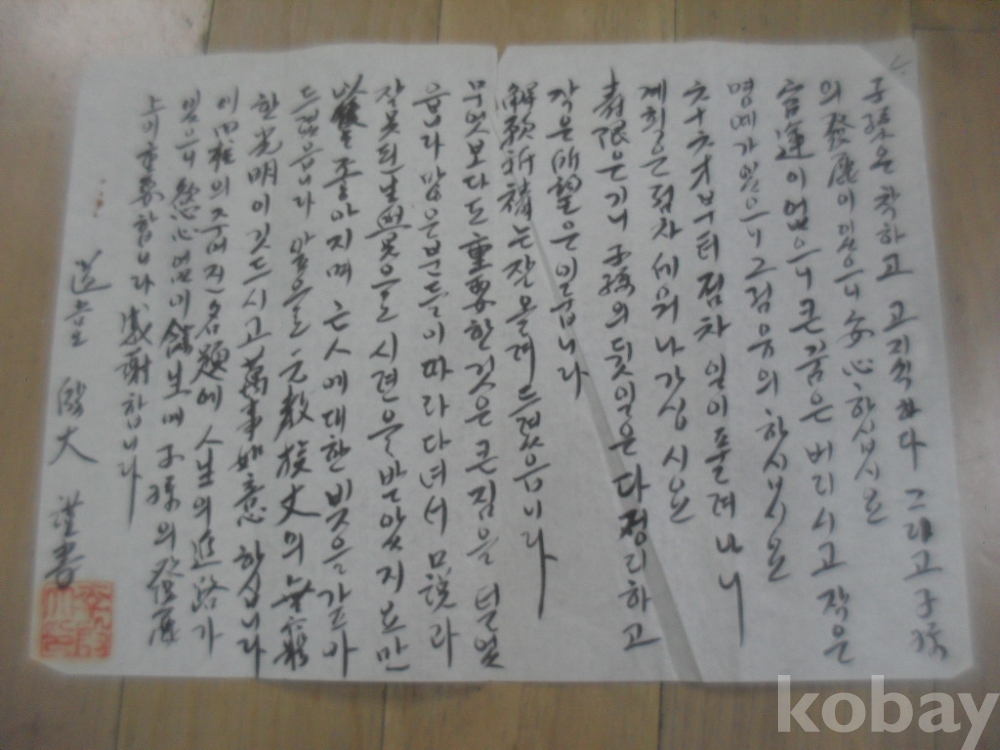 子孫은 착하고 고지식하다 그리고 子孫
의 發展이 있으니 安心하십시요
官運이 없으니 큰꿈은 버리시고 작은
명예가 있으니 그점 유의 하십시요
부터 점차 일이 풀려 나니
계획은 점차 세워 나가십시요
壽限은 기니 子孫의 뒷일은 다 정리하고
작은 所望은 이룹니다
解願祈禱는 잘 올려 드렸읍니다
무엇보다도 重要한 것은 큰짐을 덜었
읍니다 많은 분들이 따라다녀서 口說과
잘못된 시련을 받았지요만
以後 좋아지며 人에 대한 빗을 갚아
드렸읍니다 앞을
한 光明이 깃드시고 萬事如意 하십니다
이 四柱의 주어진 名題에 人生의 進路가
있으니 慾心없이 餘生에 子孫의 發展
上이 重要합니다 感謝합니다
大 謹書
kobay